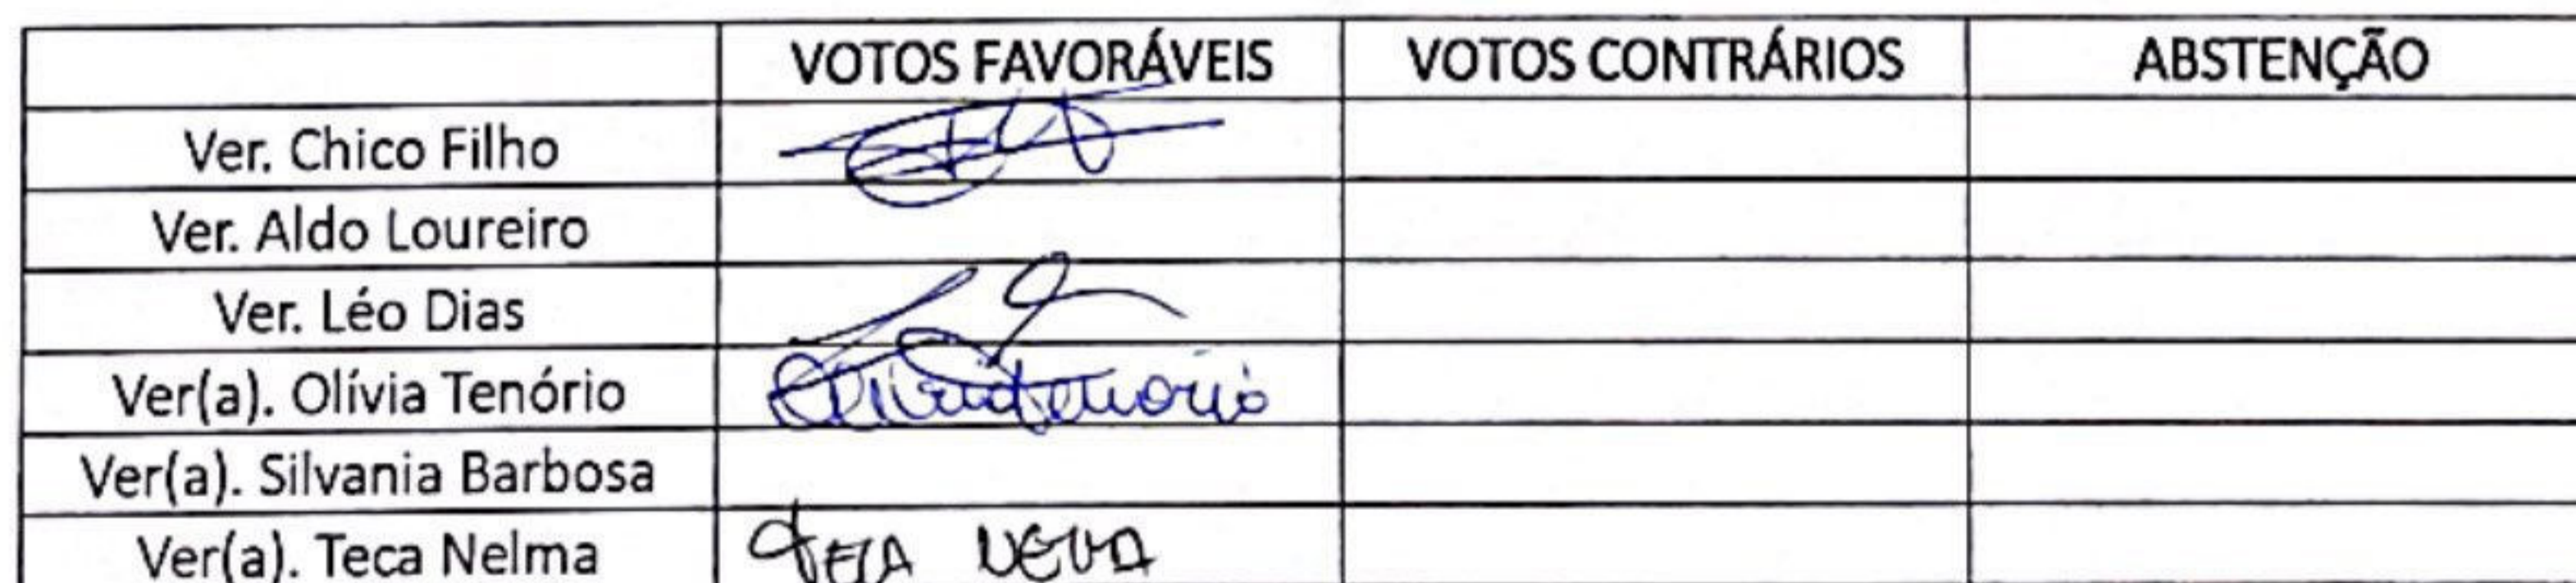 VOTOS FAVORÁVEIS VOTOS CONTRÁRIOS ABSTENÇÃO
Ver. Chico Filho
Ver. Aldo Loureiro
Ver. Léo Dias
Ver(a). Olívia Tenório Olivia Tenório
Ver(a). Silvania Barbosa
Ver(a). Teca Nelma TECA NELMA